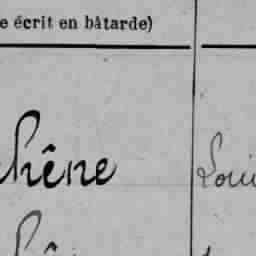 e écrit en bâtarde)
hêne Loui